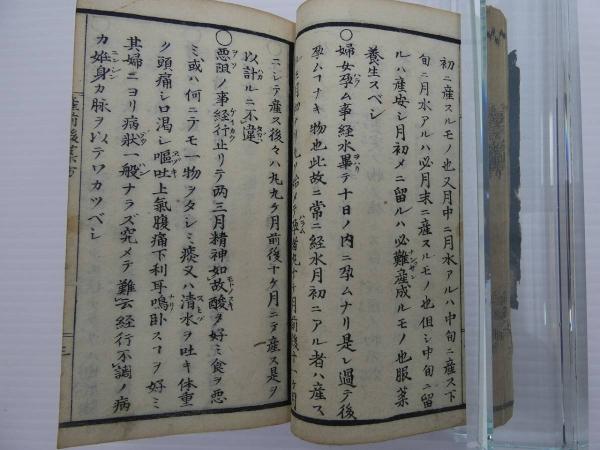 初ニ産スルモノ也又月中ニ月水アルハ中旬ニ産ス下
旬ニ月水アルハ必月末ニ産スルモノ也但シ中旬ニ留
ルハ産安シ月初メニ留ルハ必難産成ルモノ也服薬
養生スベシ
○婦女孕ム事経水畢テ十日ノ内ニ孕ムナリ是レ過テ後
孕ムフナキ物也此故ニ常ニ経水月初ニアル者ハ産ス
ニシテ産ス後々ハ九九ケ月前後十ケ月ニテ産ス是ヲ
以計ルニ不違
○悪阻ノ事経行止リテ両三月精神如故酸ヲ好ミ食ヲ悪
ミ或ハ何ニテモ一物ヲタシミ痰又ハ清水ヲ吐キ体重
ク頭痛シ口渇シ嘔吐上氣腹痛下利耳鳴臥スヿヲ好ミ
其婦ニヨリ病状一般ナラズ究メテ難云経行不調ノ病
カ姙身カ脉ヲ以テワカツベシ